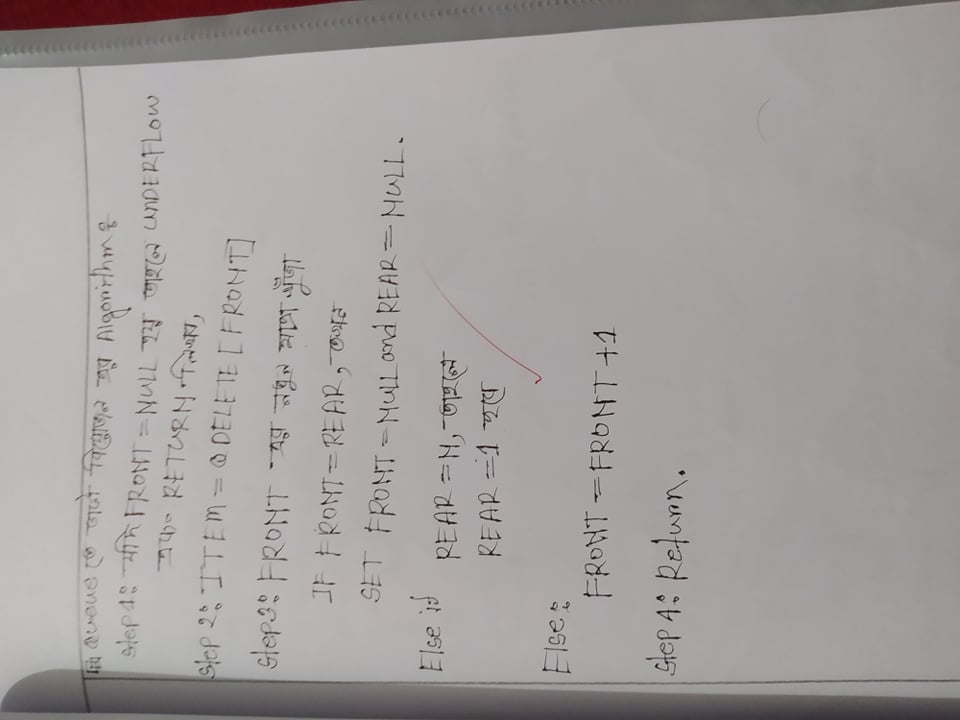 Queue তে ডাটা বিয়োজন এর Algorithm:
Step 1: যদি FRONT = NULL হয় তাহলে UNDERFLOW
এবং RETURN লিখব,
Step 2: ITEM = QDELETE [FRONT]
Step 3: FRONT এর নতুন মান খুঁজা
IF FRONT = REAR, তখন
SET FRONT = NULL and REAR = NULL.
Else if
REAR = N, তাহলে
REAR = 1 হবে
Else:
FRONT = FRONT +1
Step 4: Return.